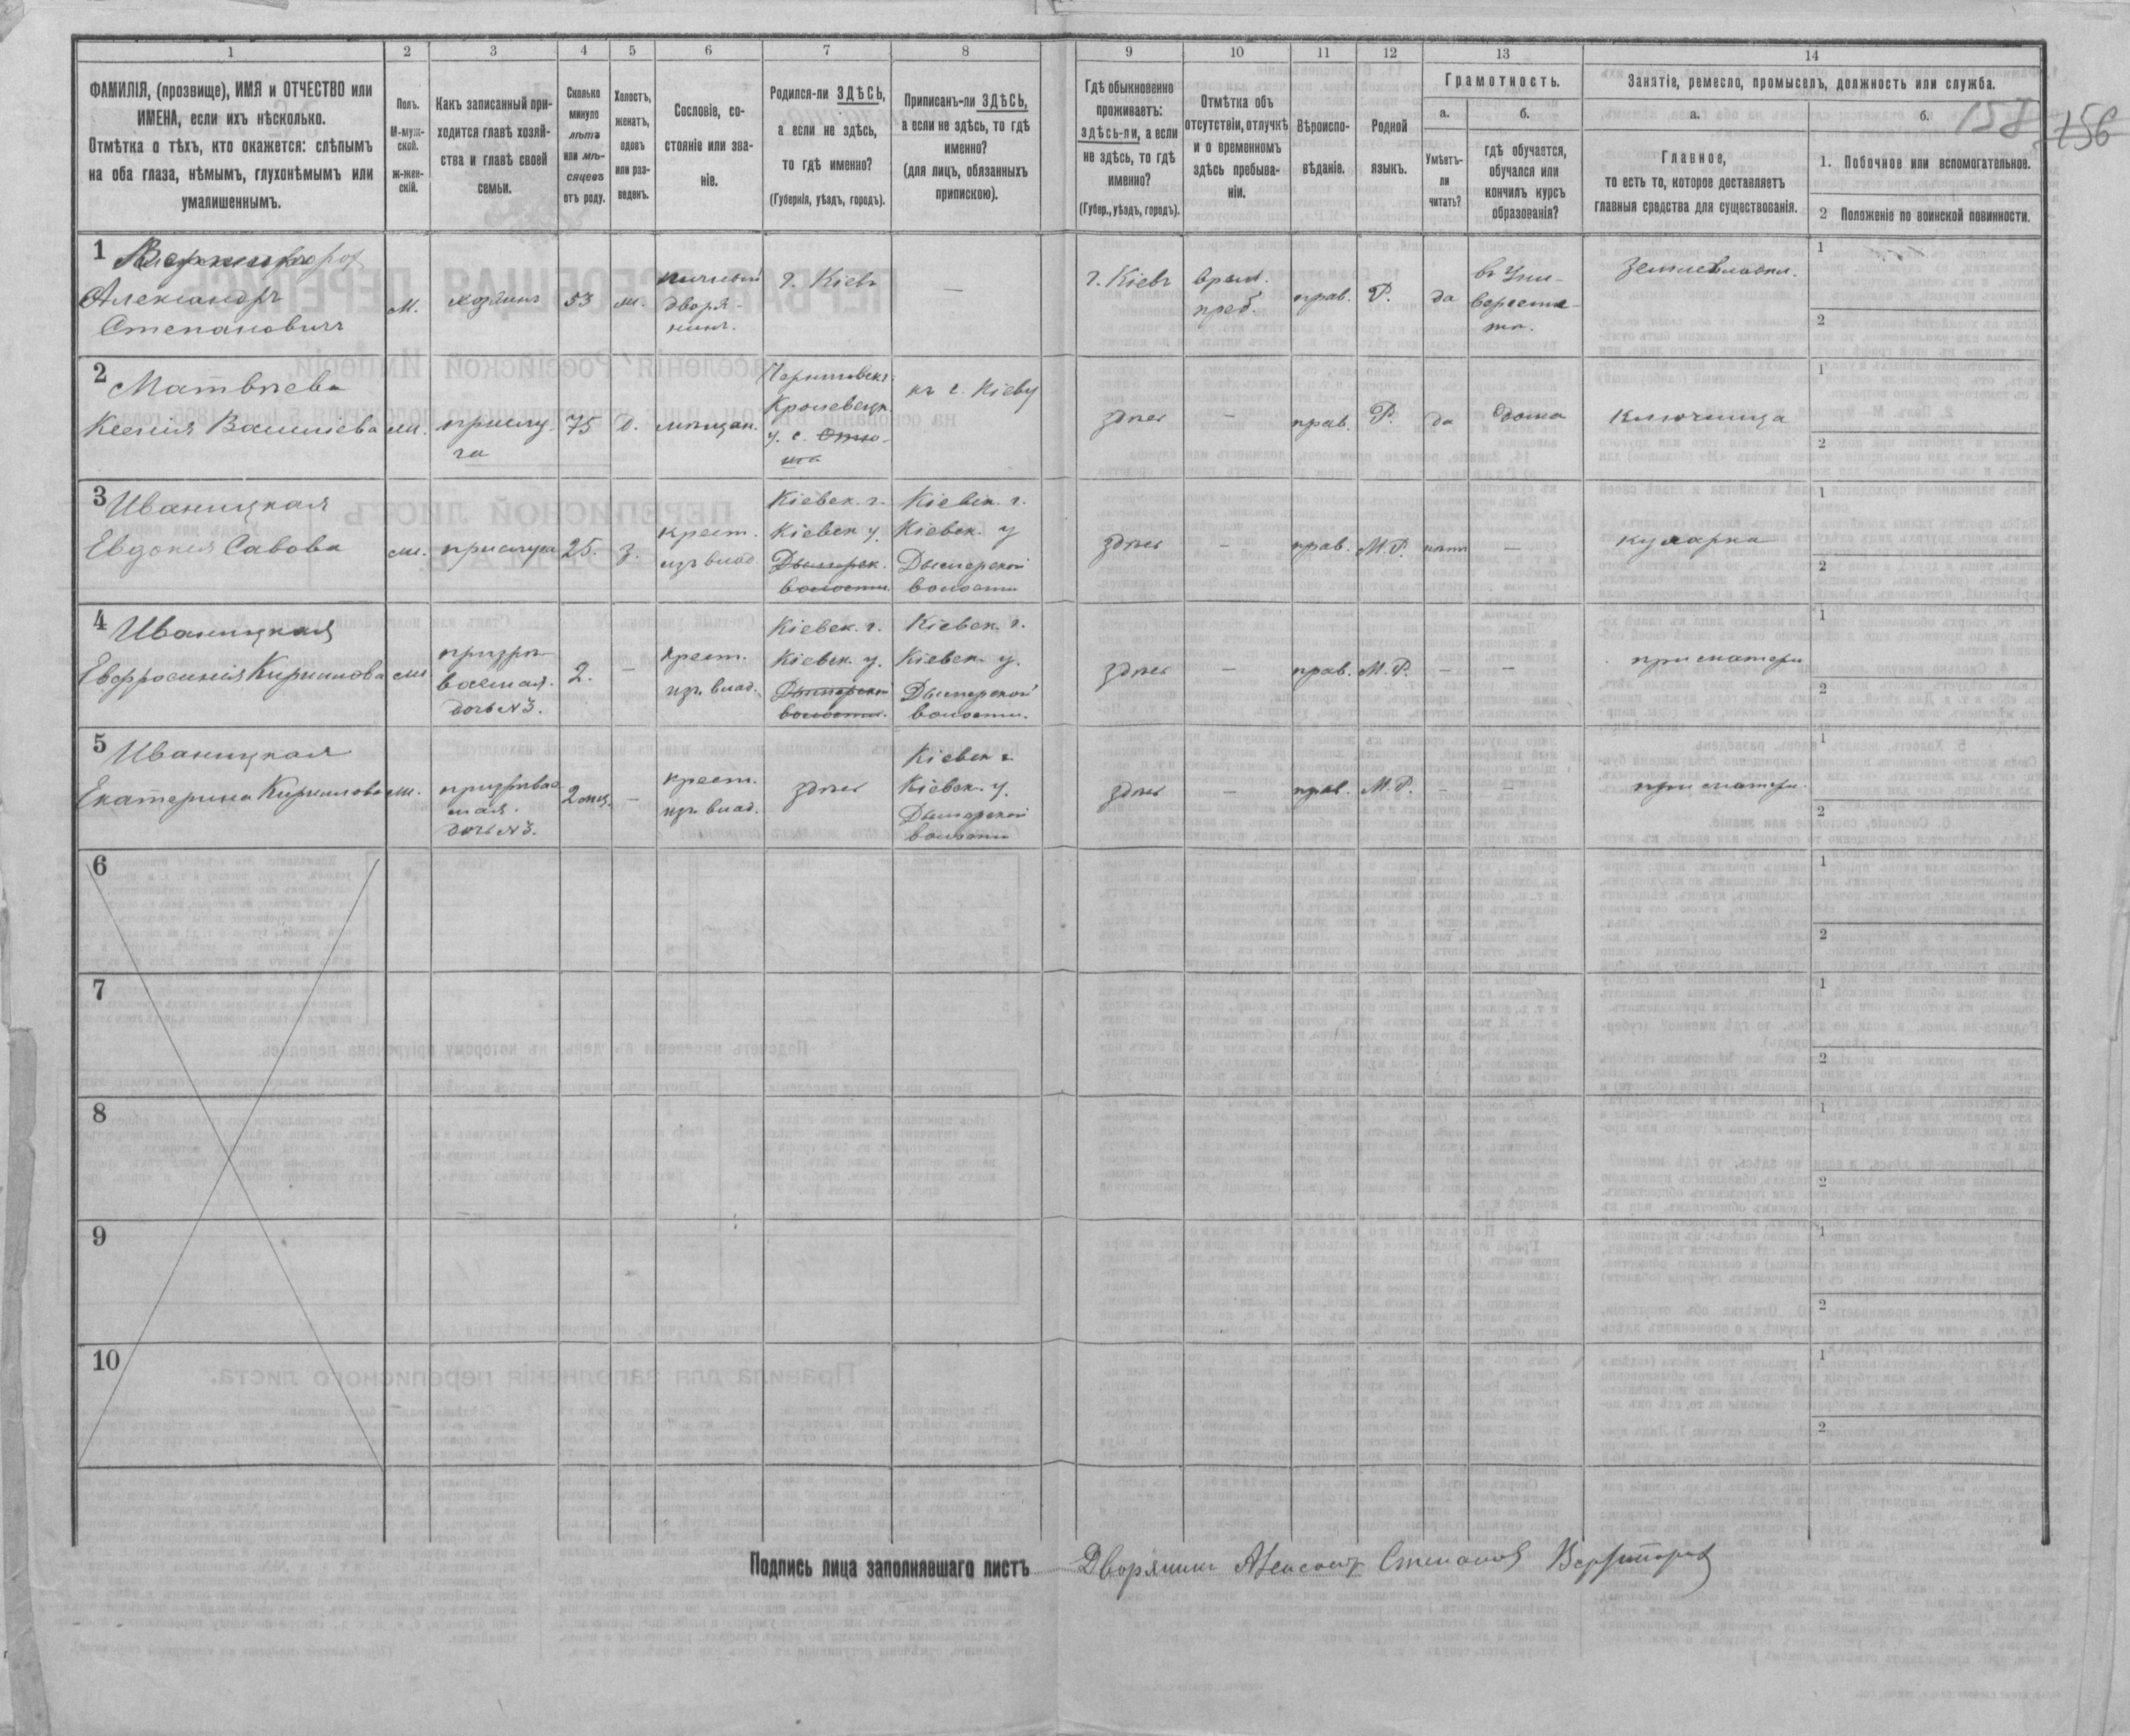 1
2
3
4
5
6
7
8
9
10
11
12
13
14
ФАМИЛІЯ, (прозвище), ИМЯ и ОТЧЕСТВО или
ИМЕНА, если ихъ нѣсколько.
Отмѣтка о тѣхъ, кто окажется: слѣпымъ
на оба глаза, нѣмымъ, глухонѣмымъ или
умалишеннымъ.
Полъ.
М-муж-
ской.
ж-жен-
скій.
Какъ записанный при-
ходится главѣ хозяй-
ства и главѣ своей
семьи.
Сколько
минуло
лѣтъ
или мѣ-
сяцевъ
отъ роду.
Холостъ,
женатъ,
вдовъ
или раз-
веденъ.
Сословіе, со-
стояніе или зва-
ніе.
Родился-ли ЗДѢСЬ,
а если не здѣсь,
то гдѣ именно?
(Губернія, уѣздъ, городъ).
Приписанъ-ли ЗДѢСЬ,
а если не здѣсь, то гдѣ
именно?
(для лицъ, обязанныхъ
припискою).
Гдѣ обыкновенно
проживаетъ:
здѣсь-ли, а если
не здѣсь, то гдѣ
именно?
(Губер., уѣздъ, городъ).
Отмѣтка объ
отсутствіи, отлучкѣ
и о временномъ
здѣсь пребыва-
ніи.
Вѣроиспо-
вѣданіе.
Родной
языкъ.
Грамотность.
а.
Умѣетъ-
ли
читать?
б.
гдѣ обучается,
обучался или
кончилъ курсъ
образованія?
Занятіе, ремесло, промыселъ, должность или служба.
а.
Главное,
то есть то, которое доставляетъ
главныя средства для существованія.
б.
1. Побочное или вспомогательное.
2 Положеніе по воинской повинности.
158
156
1
Александръ
Степановичъ
М.
хозяинъ
53
ж.
личный
дворя-
нинъ.
г. Кіевъ
—
г. Кіевъ
врем.
преб.
прав.
Р.
да
въ Уни-
верситетѣ.
землевладѣл.
1
2
2
Матвѣева
Ксенія Васильева
ж.
прислу-
га
75
в.
мѣщан.
Черниговск.
Кролевецк.
у. с.
къ г. Кіеву
здѣсь
—
прав.
Р.
да
дома
ключница
1
2
3
Иваницкая
Евдокія Савова
ж.
прислуга
25.
з.
крест.
изъ влад.
Кіевск. г.
Кіевск. у.
Дымерск.
волости.
Кіевск. г.
Кіевск. у
Дымерской
волости
здѣсь
—
прав.
М.Р.
нѣтъ
—
кухарка
1
2
4
Иваницкая
Евфросинія Кириллова
ж
призрѣ-
ваемая.
дочь №3.
2.
—
крест.
изъ влад.
Кіевск. г.
Кіевск. у.
Дымерской
волости.
Кіевск. г.
Кіевск. у.
Дымерской
волости.
здѣсь
—
прав.
М.Р.
—
—
при матери
1
2
5
Иваницкая
Екатерина Кириллова
ж.
призрѣвае-
мая.
дочь №3.
2 мѣс.
—
крест.
изъ влад.
здѣсь
Кіевск г.
Кіевск. у.
Дымерской
волости
здѣсь
—
прав.
М.Р.
—
—
при матери.
1
2
6
1
2
7
1
2
8
1
2
9
1
2
10
1
2
Подпись лица заполнявшаго листъ
Дворянинъ Степановъ